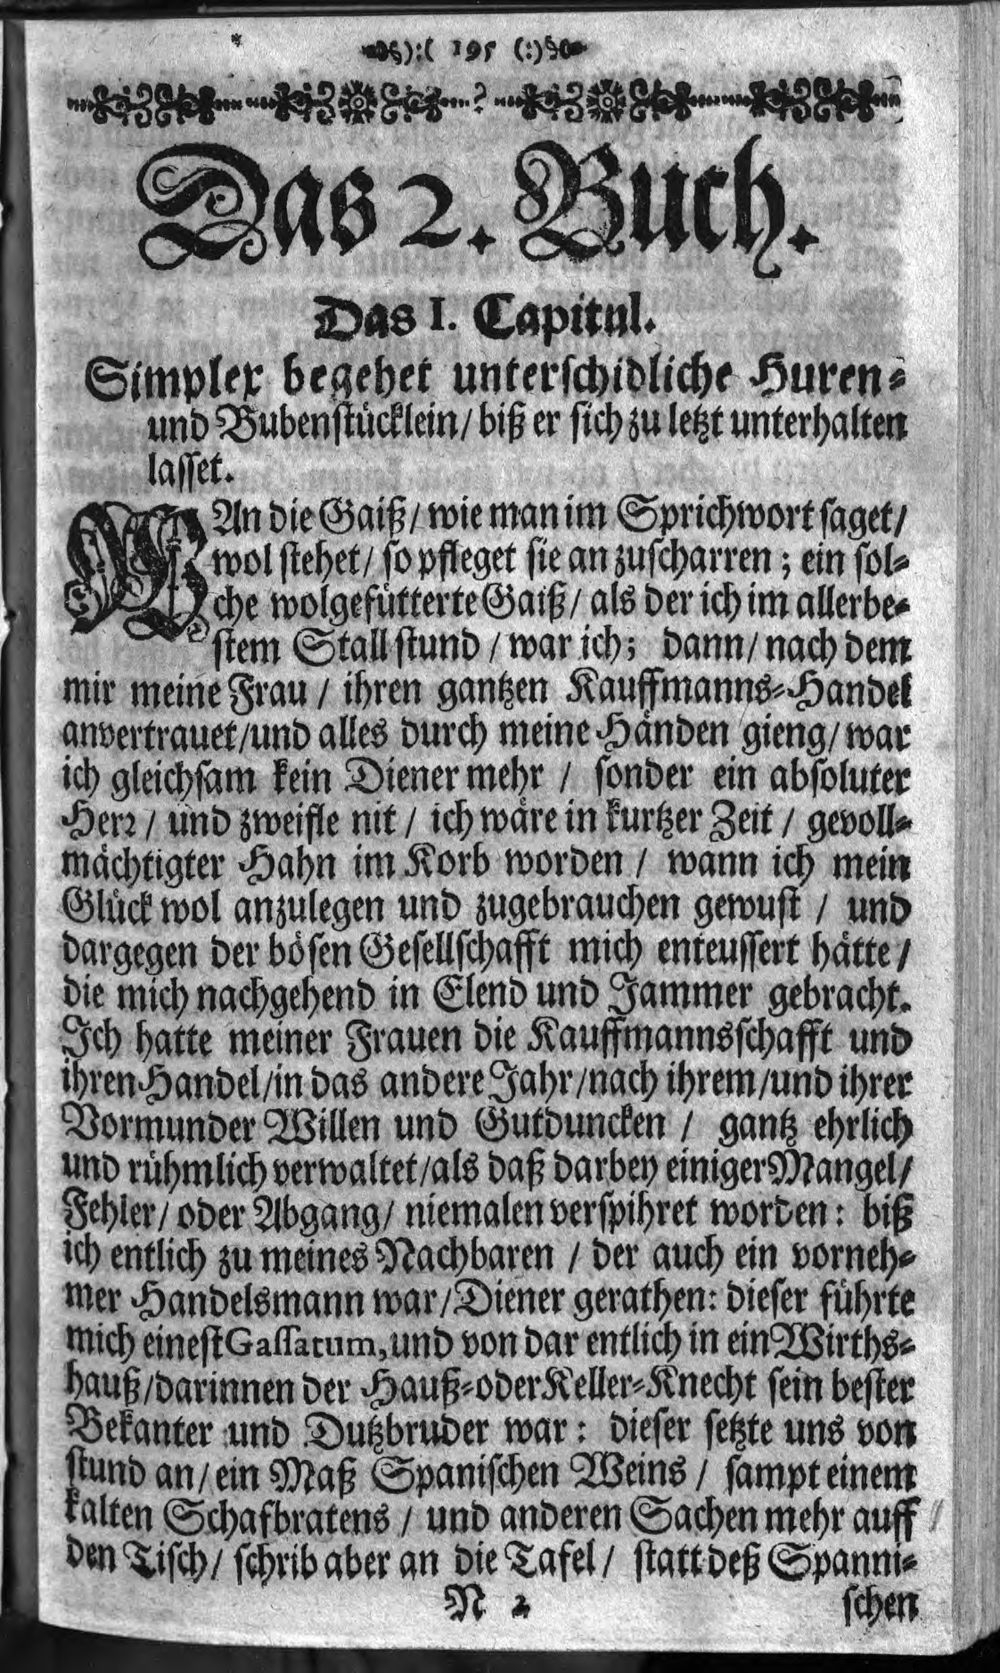 ):( 195 (:)
Das 2. Buch.
Das I. Capitul.
Simplex begehet unterschidliche Huren-
und Bubenstücklein/ biß er sich zu letzt unterhalten
lasset.
WAn die Gaiß/ wie man im Sprichwort saget/
wol stehet/ so pfleget sie an zuscharren; ein sol-
che wolgefütterte Gaiß/ als der ich im allerbe-
stem Stall stund / war ich; dann/ nach dem
mir meine Frau / ihren gantzen Kauffmanns-Handel
anvertrauet/und alles durch meine Händen gieng/ war
ich gleichsam kein Diener mehr / sonder ein absoluter
Herꝛ / und zweifle nit / ich wäre in kurtzer Zeit / gevoll-
mächtigter Hahn im Korb worden / wann ich mein
Glück wol anzulegen und zugebrauchen gewust / und
dargegen der bösen Gesellschafft mich enteussert hätte /
die mich nachgehend in Elend und Jammer gebracht.
Ich hatte meiner Frauen die Kauffmannsschafft und
ihren Handel/in das andere Jahr/nach ihrem/und ihrer
Vormunder Willen und Gutduncken / gantz ehrlich
und rühmlich verwaltet/als daß darbey einiger Mangel/
Fehler/ oder Abgang/ niemalen verspihret worden: biß
ich entlich zu meines Nachbaren / der auch ein vorneh-
mer Handelsmann war/Diener gerathen: dieser führte
mich einest Gassatum, und von dar entlich in ein Wirths-
hauß/darinnen der Hauß-oder Keller-Knecht sein bester
Bekanter und Dutzbruder war: dieser setzte uns von
stund an/ ein Maß Spanischen Weins / sampt einem
kalten Schafbratens / und anderen Sachen mehr auff
den Tisch/ schrib aber an die Tafel/ statt deß Spanni-
N 2 schen